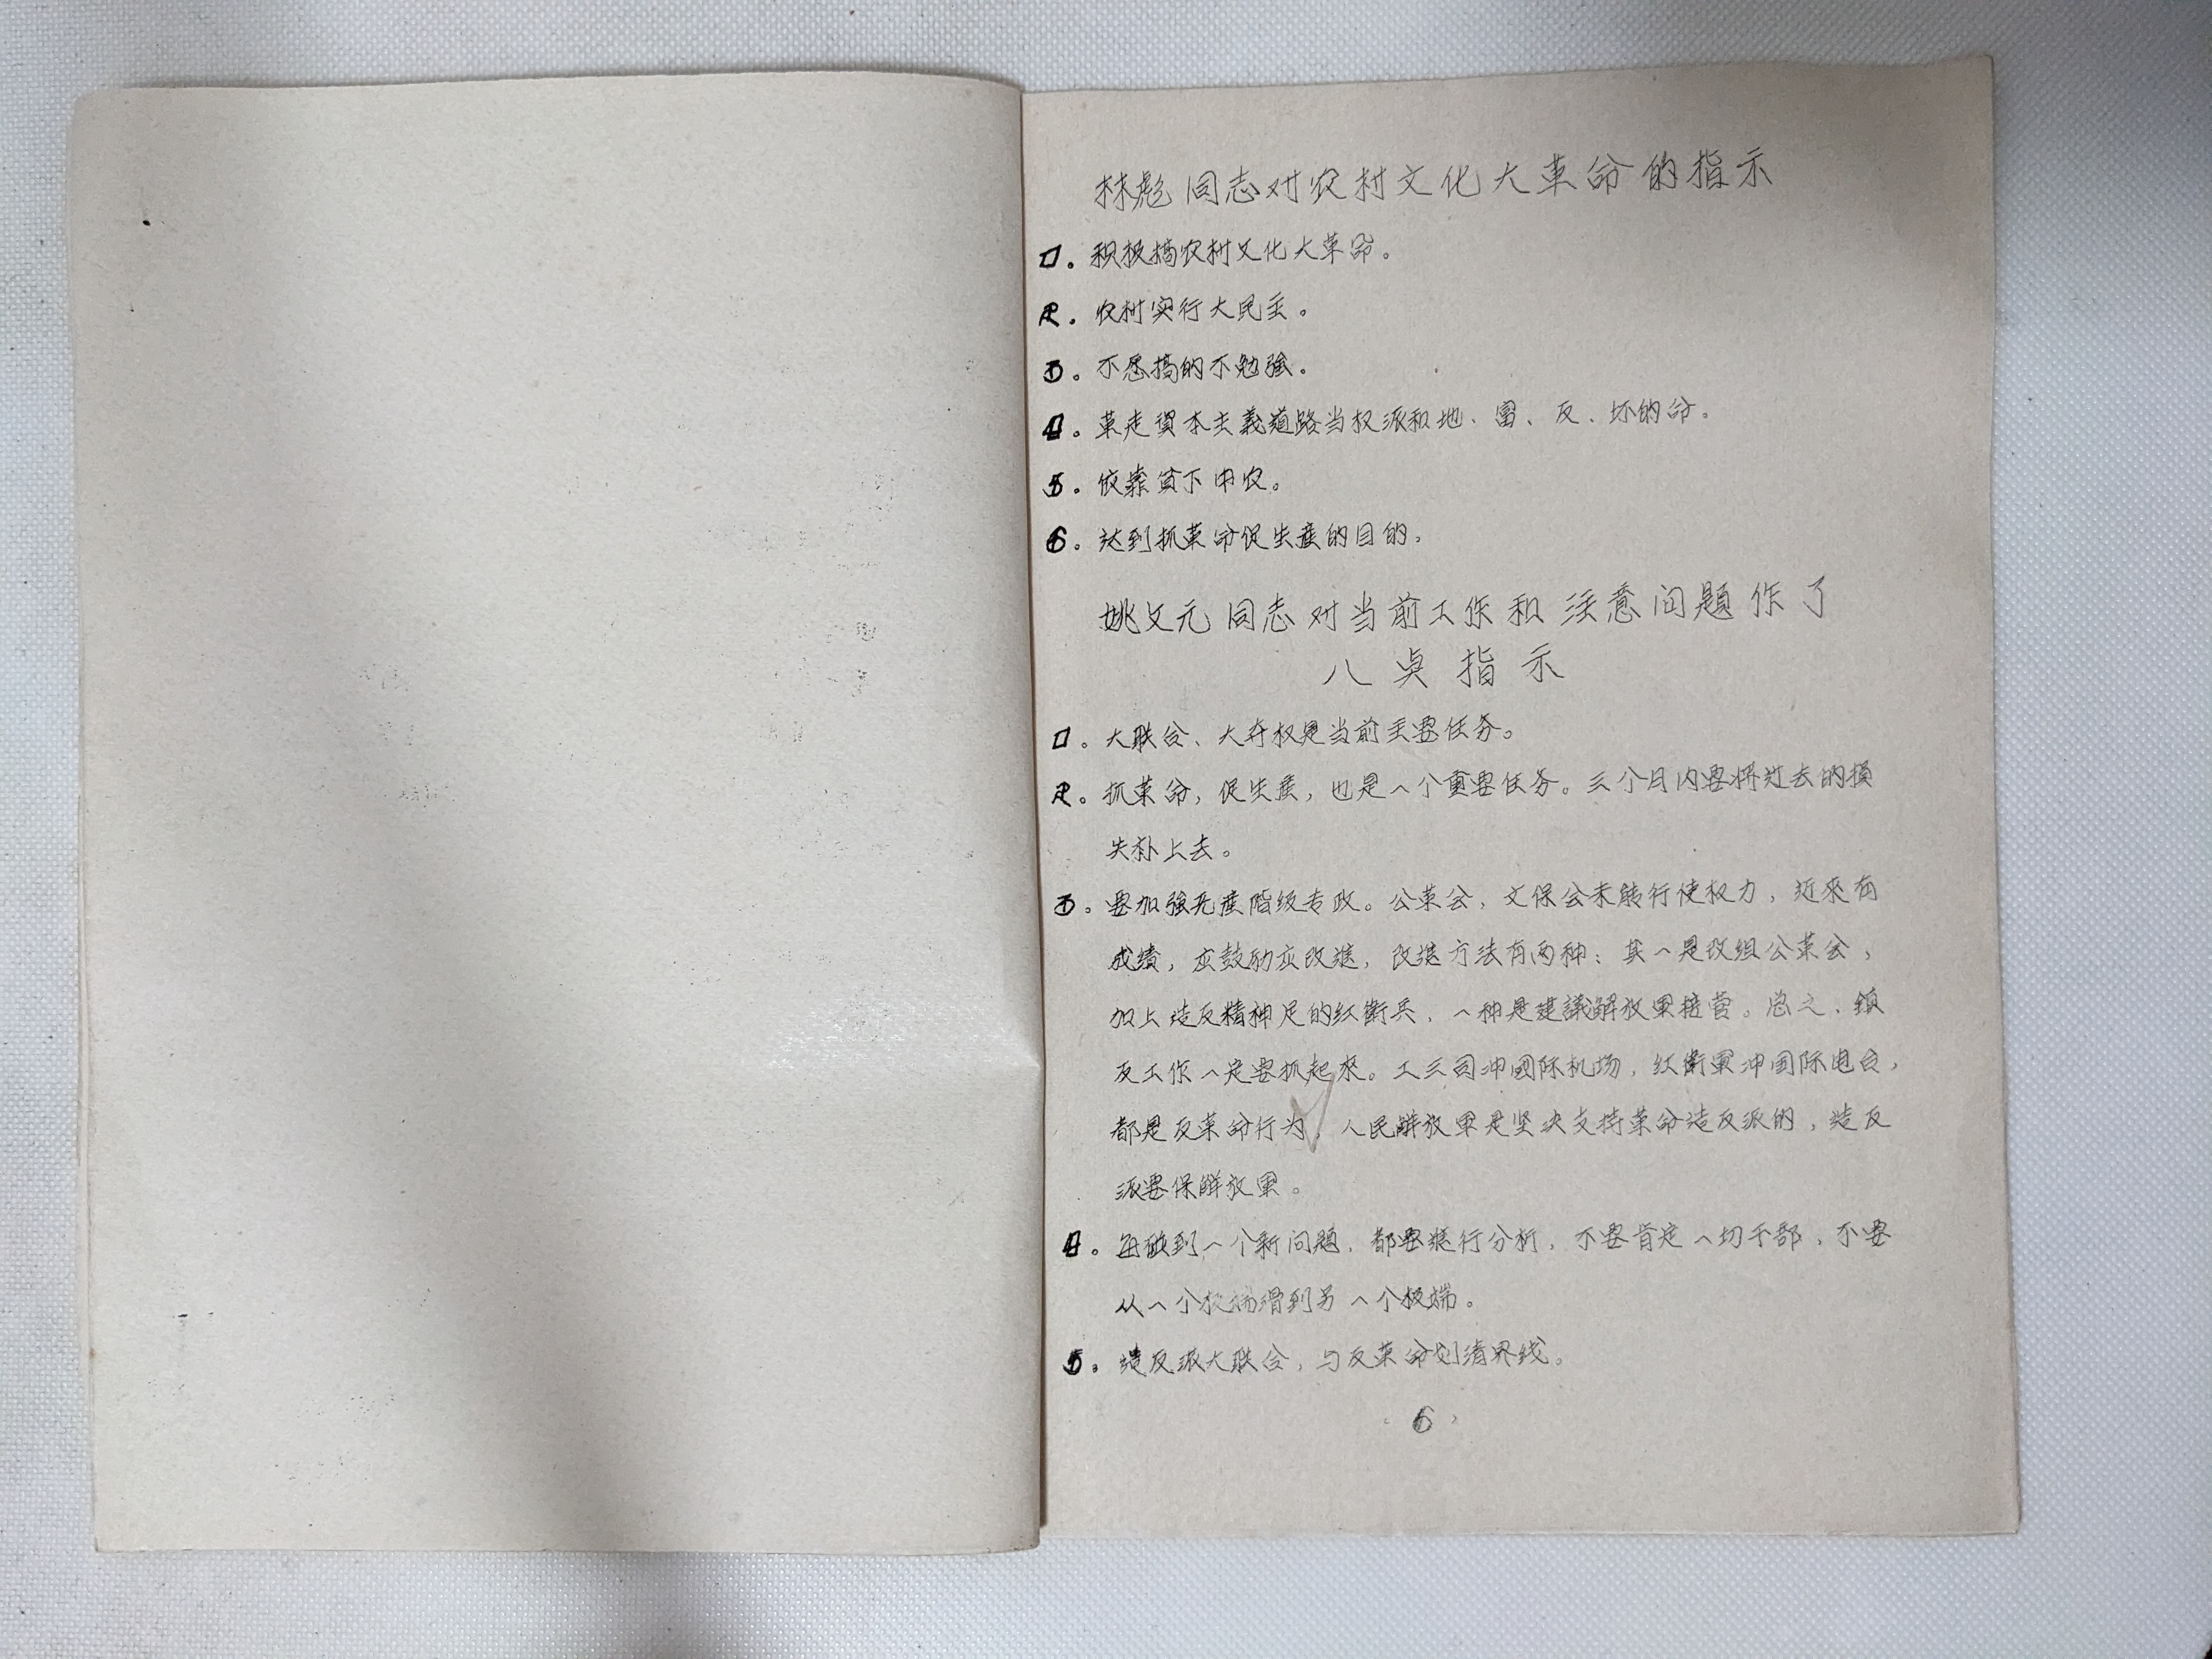 林彪同志对农村文化大革命的指示
1。积极搞农村文化大革命。
2。农村实行大民主。
3。不愿搞的不勉強。
4。革走資本主義道路当权派和地、富、反、坏的命。
5。依靠貧下中农。
6。达到抓革命促生產的目的。
姚文元同志对当前工作和注意问題作了
八点指示
1。大联合、大夺权是当前主要任务。
2。抓革命，促生產，也是一个重要任务。三个月内要将过去的損
失补上去。
3。要加強无產階级专政。公革会，文保会未能行使权力，近來有
成績，应鼓励应改進，改進方法有两种：其一是改组公革会，
加上造反精神足的红衛兵，一种是建議解放軍接管。总之，鎮
反工作一定要抓起來。工三司冲國际机场，红衛軍冲国际电台，
都是反革命行为，人民解放軍是坚决支持革命造反派的，造反
派要保解放軍。
4。每碰到一个新问題，都要進行分析，不要肯定一切干部，不要
从一个极端滑到另一个极端。
5。造反派大联合，与反革命划清界线。
6